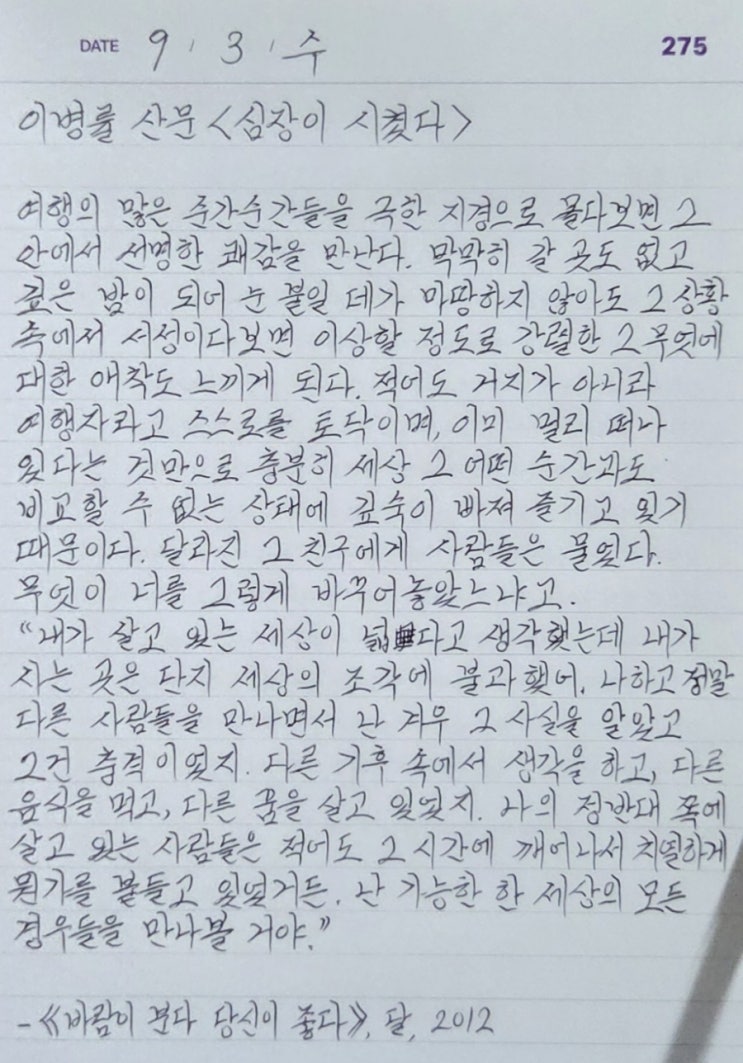 DATE 9 / 3 / 수 275
이병률 산문 <심장이 시켰다>
여행의 많은 순간순간들을 극한 지경으로 몰다보면 그
안에서 선명한 쾌감을 만난다. 막막히 갈 곳도 없고
깊은 밤이 되어 눈 붙일 데가 마땅하지 않아도 그 상황
속에서 서성이다보면 이상할 정도로 강렬한 그 무엇에
대한 애착도 느끼게 된다. 적어도 거지가 아니라
여행자라고 스스로를 토닥이며, 이미 멀리 떠나
있다는 것만으로 충분히 세상 그 어떤 순간과도
비교할 수 없는 상태에 깊숙이 빠져 즐기고 있기
때문이다. 달라진 그 친구에게 사람들은 물었다.
무엇이 너를 그렇게 바꾸어놓았느냐고.
“내가 살고 있는 세상이 넓다고 생각했는데 내가
사는 곳은 단지 세상의 조각에 불과했어. 나하고 정말
다른 사람들을 만나면서 난 겨우 그 사실을 알았고
그건 충격이었지. 다른 기후 속에서 생각을 하고, 다른
음식을 먹고, 다른 꿈을 살고 있었지. 나의 정반대 쪽에
살고 있는 사람들은 적어도 그 시간에 깨어나서 치열하게
뭔가를 붙들고 있었거든. 난 가능한 한 세상의 모든
경우들을 만나볼 거야.”
-《바람이 분다 당신이 좋다》, 달, 2012